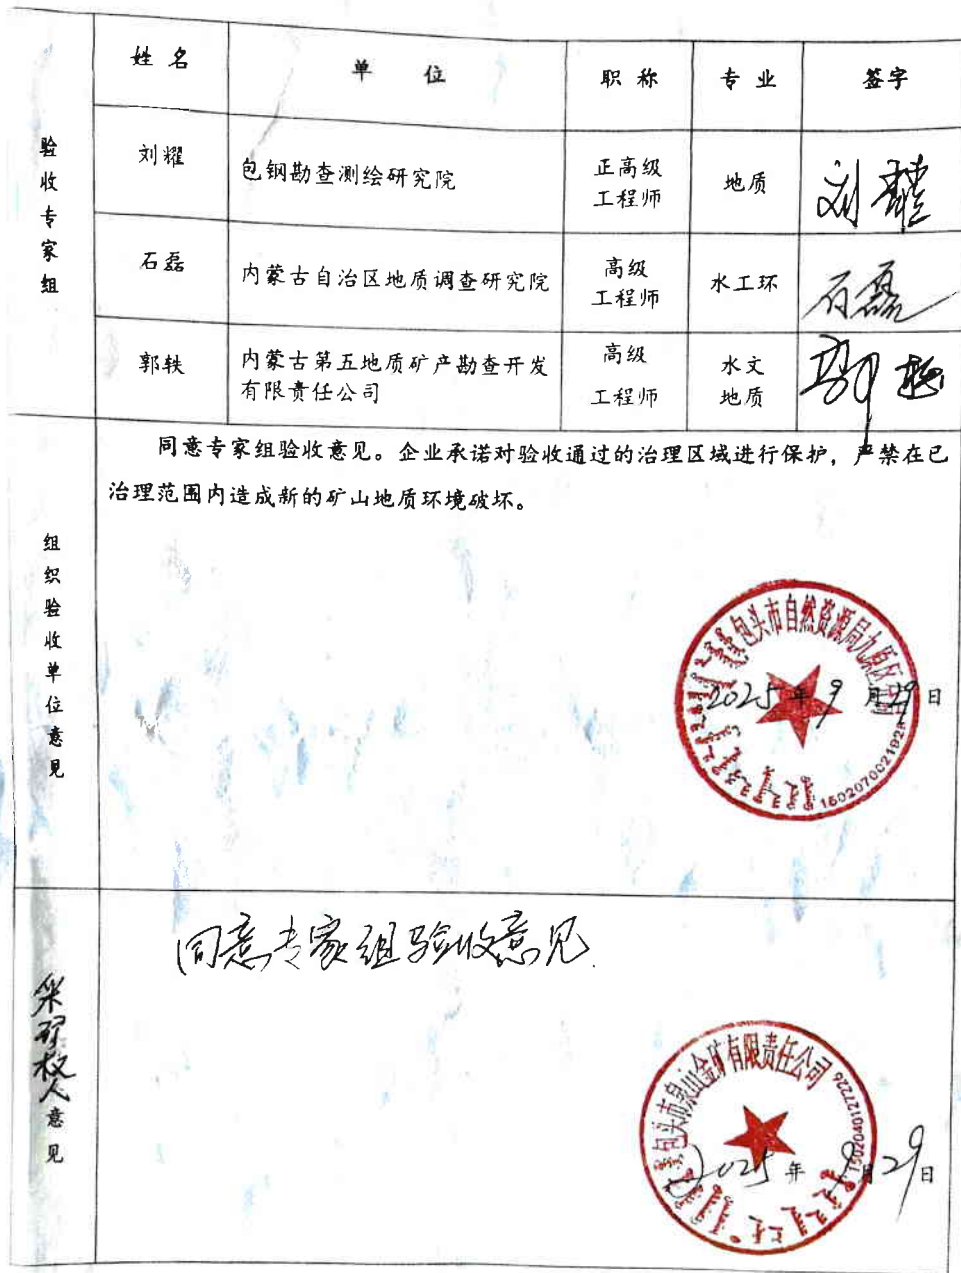 验收专家组
姓名 单位 职称 专业 签字
刘耀 包钢勘查测绘研究院 正高级 地质 刘耀
工程师
石磊 内蒙古自治区地质调查研究院 高级 水工环 石磊
工程师
郭轶 内蒙古第五地质矿产勘查开发 高级 水文 郭轶
有限责任公司 工程师 地质
组织验收单位意见
同意专家组验收意见。企业承诺对验收通过的治理区域进行保护，严禁在已
治理范围内造成新的矿山地质环境破坏。
包头市自然资源局九原区分局
2025年9月29日
采矿权人意见
同意专家组验收意见.
包头市泉山金矿有限责任公司
1502040127226
2025年9月29日